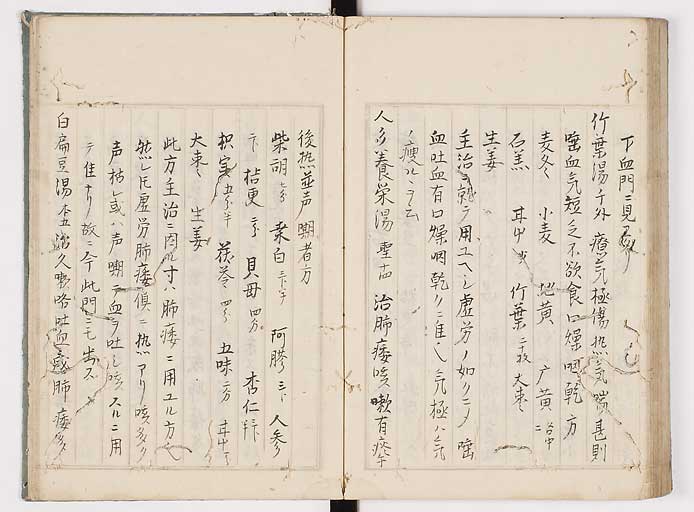 下血門ニ見
竹葉湯千外 療気極傷熱気喘甚則
唾血気短乏不欲食口燥咽乾方
麦冬 小麦 地黄 广黄
石羔 甘中 竹葉 大棗
生姜
主治ヲ就テ用ユヘシ虚労ノ如クニメ唾
血吐血有口燥咽乾クニ准ヘ気極ハ気
ノ痩
人参養栄湯 聖 治肺痿咳嗽有痰午
後热並声嘶者方
柴胡 桑白 阿膠 人参
桔更 貝母四分 杏仁
枳実五分半 茯苓四分 五味二分 甘中
大棗 生姜
此方主治ニ因ル寸ハ肺痿ニ用ユル方也
然レ𪜈虚労肺痿倶ニ热アリ咳多ク
声枯レ或ハ声嘶テ血ヲ吐シ咳スルニ用
テ佳ナリ故ニ今此門ニモ出ス
白扁豆湯 治久嗽咯吐血成肺痿多